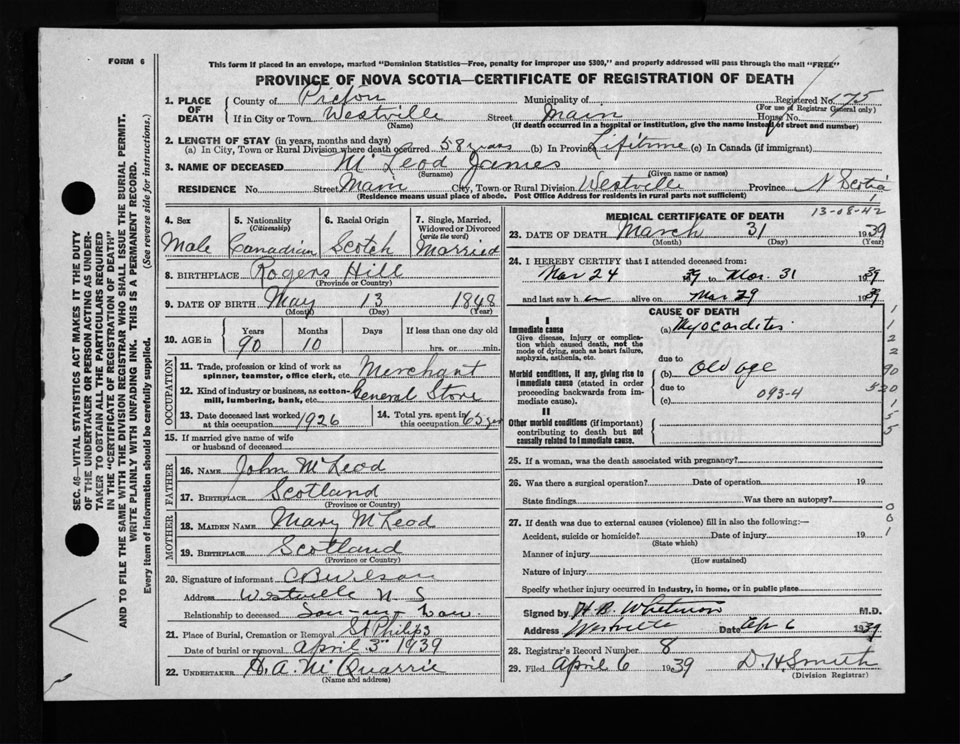 FORM 6
This form if placed in an envelope, marked "Dominion Statistics—Free, penalty for improper use $300," and properly addressed will pass through the mail "FREE"
PROVINCE OF NOVA SCOTIA—CERTIFICATE OF REGISTRATION OF DEATH
1. PLACE OF DEATH County of Pictou Municipality of Registered No. 175
(For use of Registrar General only)
If in City or Town Westville Street Main House No.
(Name) (If death occurred in a hospital or institution, give the name instead of street and number)
2. LENGTH OF STAY (in years, months and days)
(a) In City, Town or Rural Division where death occurred 58 years (b) In Province Lifetime (c) In Canada (if immigrant)
3. NAME OF DECEASED McLeod James
(Surname) (Given name or names)
RESIDENCE No. Street Main City, Town or Rural Division Westville Province N Scotia
(Residence means usual place of abode. Post Office Address for residents in rural parts not sufficient)
1
13-08-42
4. Sex 5. Nationality (Citizenship) 6. Racial Origin 7. Single, Married, Widowed or Divorced (write the word)
Male Canadian Scotch Married
8. BIRTHPLACE Rogers Hill
(Province or Country)
9. DATE OF BIRTH May 13 1848
(Month) (Day) (Year)
10. AGE in Years Months Days If less than one day old
90 10 hrs. or min.
OCCUPATION
11. Trade, profession or kind of work as spinner, teamster, office clerk, etc. Merchant
12. Kind of industry or business, as cotton-mill, lumbering, bank, etc. General Store
13. Date deceased last worked at this occupation 1926 14. Total yrs. spent in this occupation 65 years
15. If married give name of wife or husband of deceased
FATHER
16. NAME John McLeod
17. BIRTHPLACE Scotland
(Province or Country)
MOTHER
18. MAIDEN NAME Mary McLeod
19. BIRTHPLACE Scotland
(Province or Country)
20. Signature of informant C B Wilson
Address Westville N. S
Relationship to deceased Son-in-Law
21. Place of Burial, Cremation or Removal St Philips
Date of burial or removal April 3rd 1939
22. UNDERTAKER A. McQuarrie
(Name and address)
MEDICAL CERTIFICATE OF DEATH
23. DATE OF DEATH March 31 1939
(Month) (Day) (Year)
24. I HEREBY CERTIFY that I attended deceased from:
Mar 24 1939 to Mar. 31 1939
and last saw h im alive on Mar 29 1939
CAUSE OF DEATH
I
Immediate cause (a) Myocarditis
Give disease, injury or complication which caused death, not the mode of dying, such as heart failure, asphyxia, asthenia, etc.
due to
Morbid conditions, if any, giving rise to immediate cause (stated in order proceeding backwards from immediate cause). (b) Old age
due to 093-4
(c)
II
Other morbid conditions (if important) contributing to death but not causally related to immediate cause.
1
1
2
2
90
530
1
5
5
25. If a woman, was the death associated with pregnancy?
26. Was there a surgical operation? Date of operation 19
State findings Was there an autopsy?
27. If death was due to external causes (violence) fill in also the following:—
Accident, suicide or homicide? Date of injury 19
(State which)
Manner of injury
(How sustained)
Nature of injury
Specify whether injury occurred in industry, in home, or in public place
0
0
1
Signed by H. B. Whitman M.D.
Address Westville Date Apr 6 1939
28. Registrar's Record Number 8
29. Filed April 6 1939 D. H Smith
(Division Registrar)
SEC. 46—VITAL STATISTICS ACT MAKES IT THE DUTY
OF THE UNDERTAKER OR PERSON ACTING AS UNDER-
TAKER TO OBTAIN ALL THE PARTICULARS REQUIRED
IN THE "CERTIFICATE OF REGISTRATION OF DEATH"
AND TO FILE THE SAME WITH THE DIVISION REGISTRAR WHO SHALL ISSUE THE BURIAL PERMIT.
WRITE PLAINLY WITH UNFADING INK. THIS IS A PERMANENT RECORD.
Every item of information should be carefully supplied. (See reverse side for instructions.)